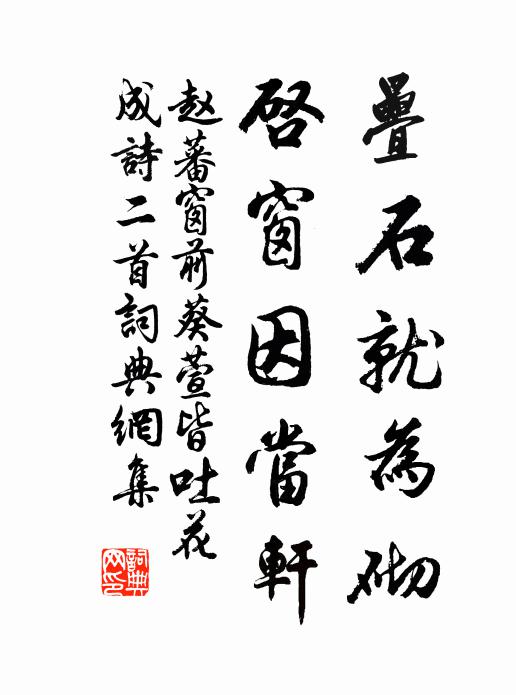 疊石就為砌
啓窗因當軒
赵蕃窗前葵萱皆吐花
成詩二首詞典網集
詞典
网印